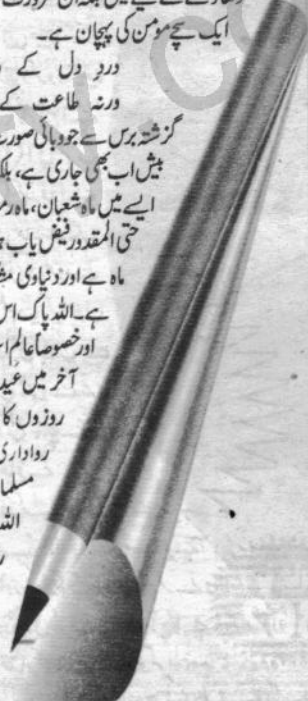 ایک سچے مومن کی پہچان ہے۔
درد دل کے
ورنہ طاعت کے
گزشتہ برس سے جو وبائی صورت
پیش اب بھی جاری ہے، بلکہ
ایسے میں ماہ شعبان، ماہ
حتی المقدور فیض یاب
ماہ ہے اور دنیاوی
ہے۔ اللہ پاک اس
اور خصوصاً عالم
آخر میں عید
روزوں کا
رواداری
اللہ